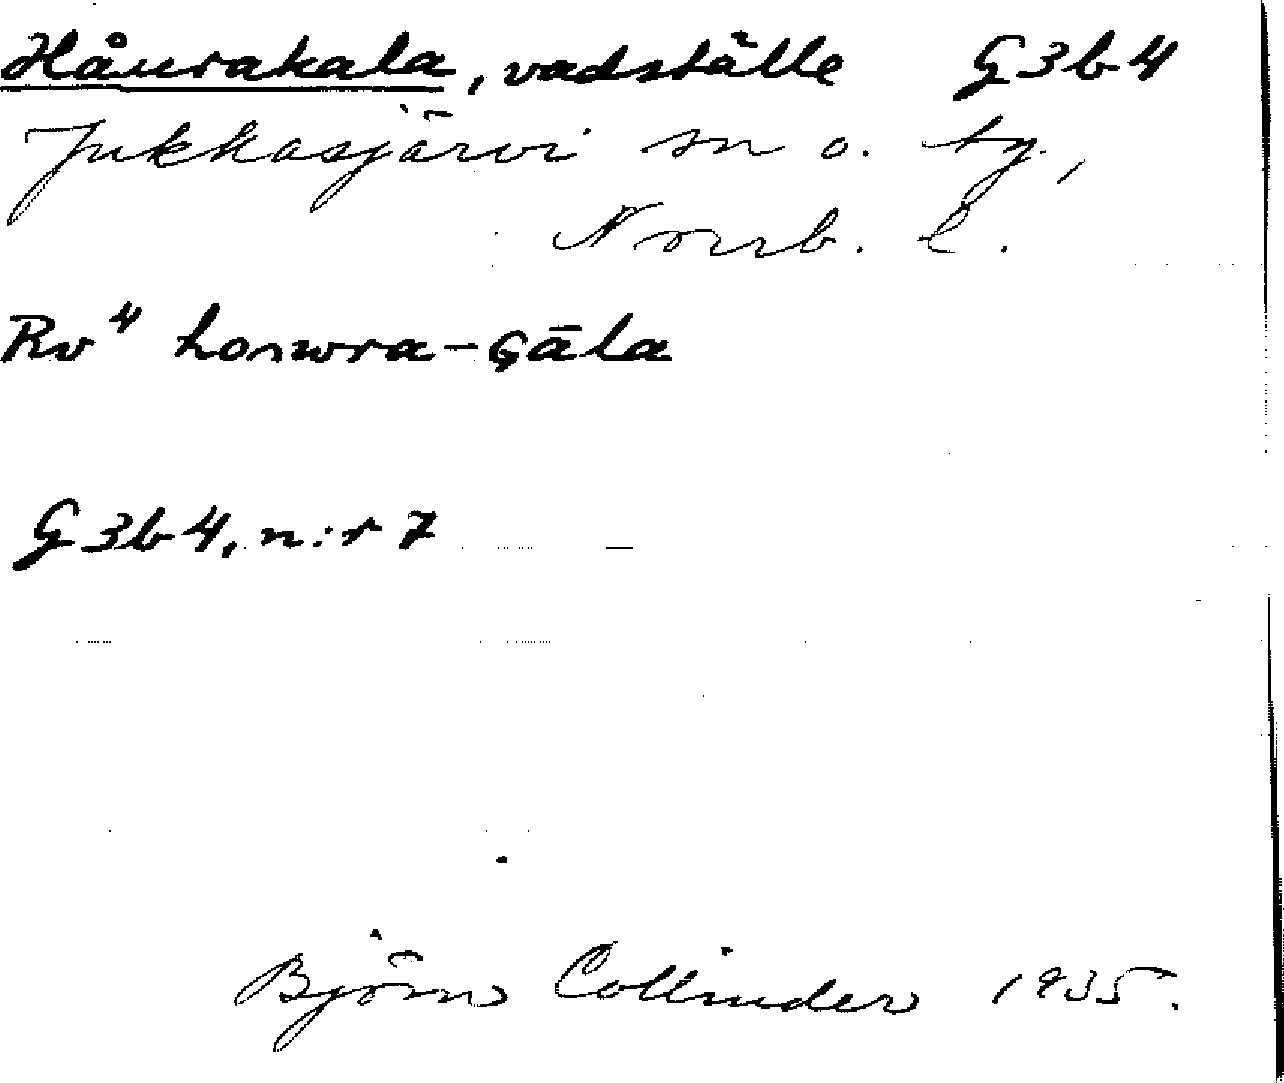 Håurakala, vadställe G3b4
Jukkasjärvi sn o. tg.,
Norrb. l.
Rv⁴ hoɜwra-Gāla
G3b4, n:r 7
Björn Collinder 1935.